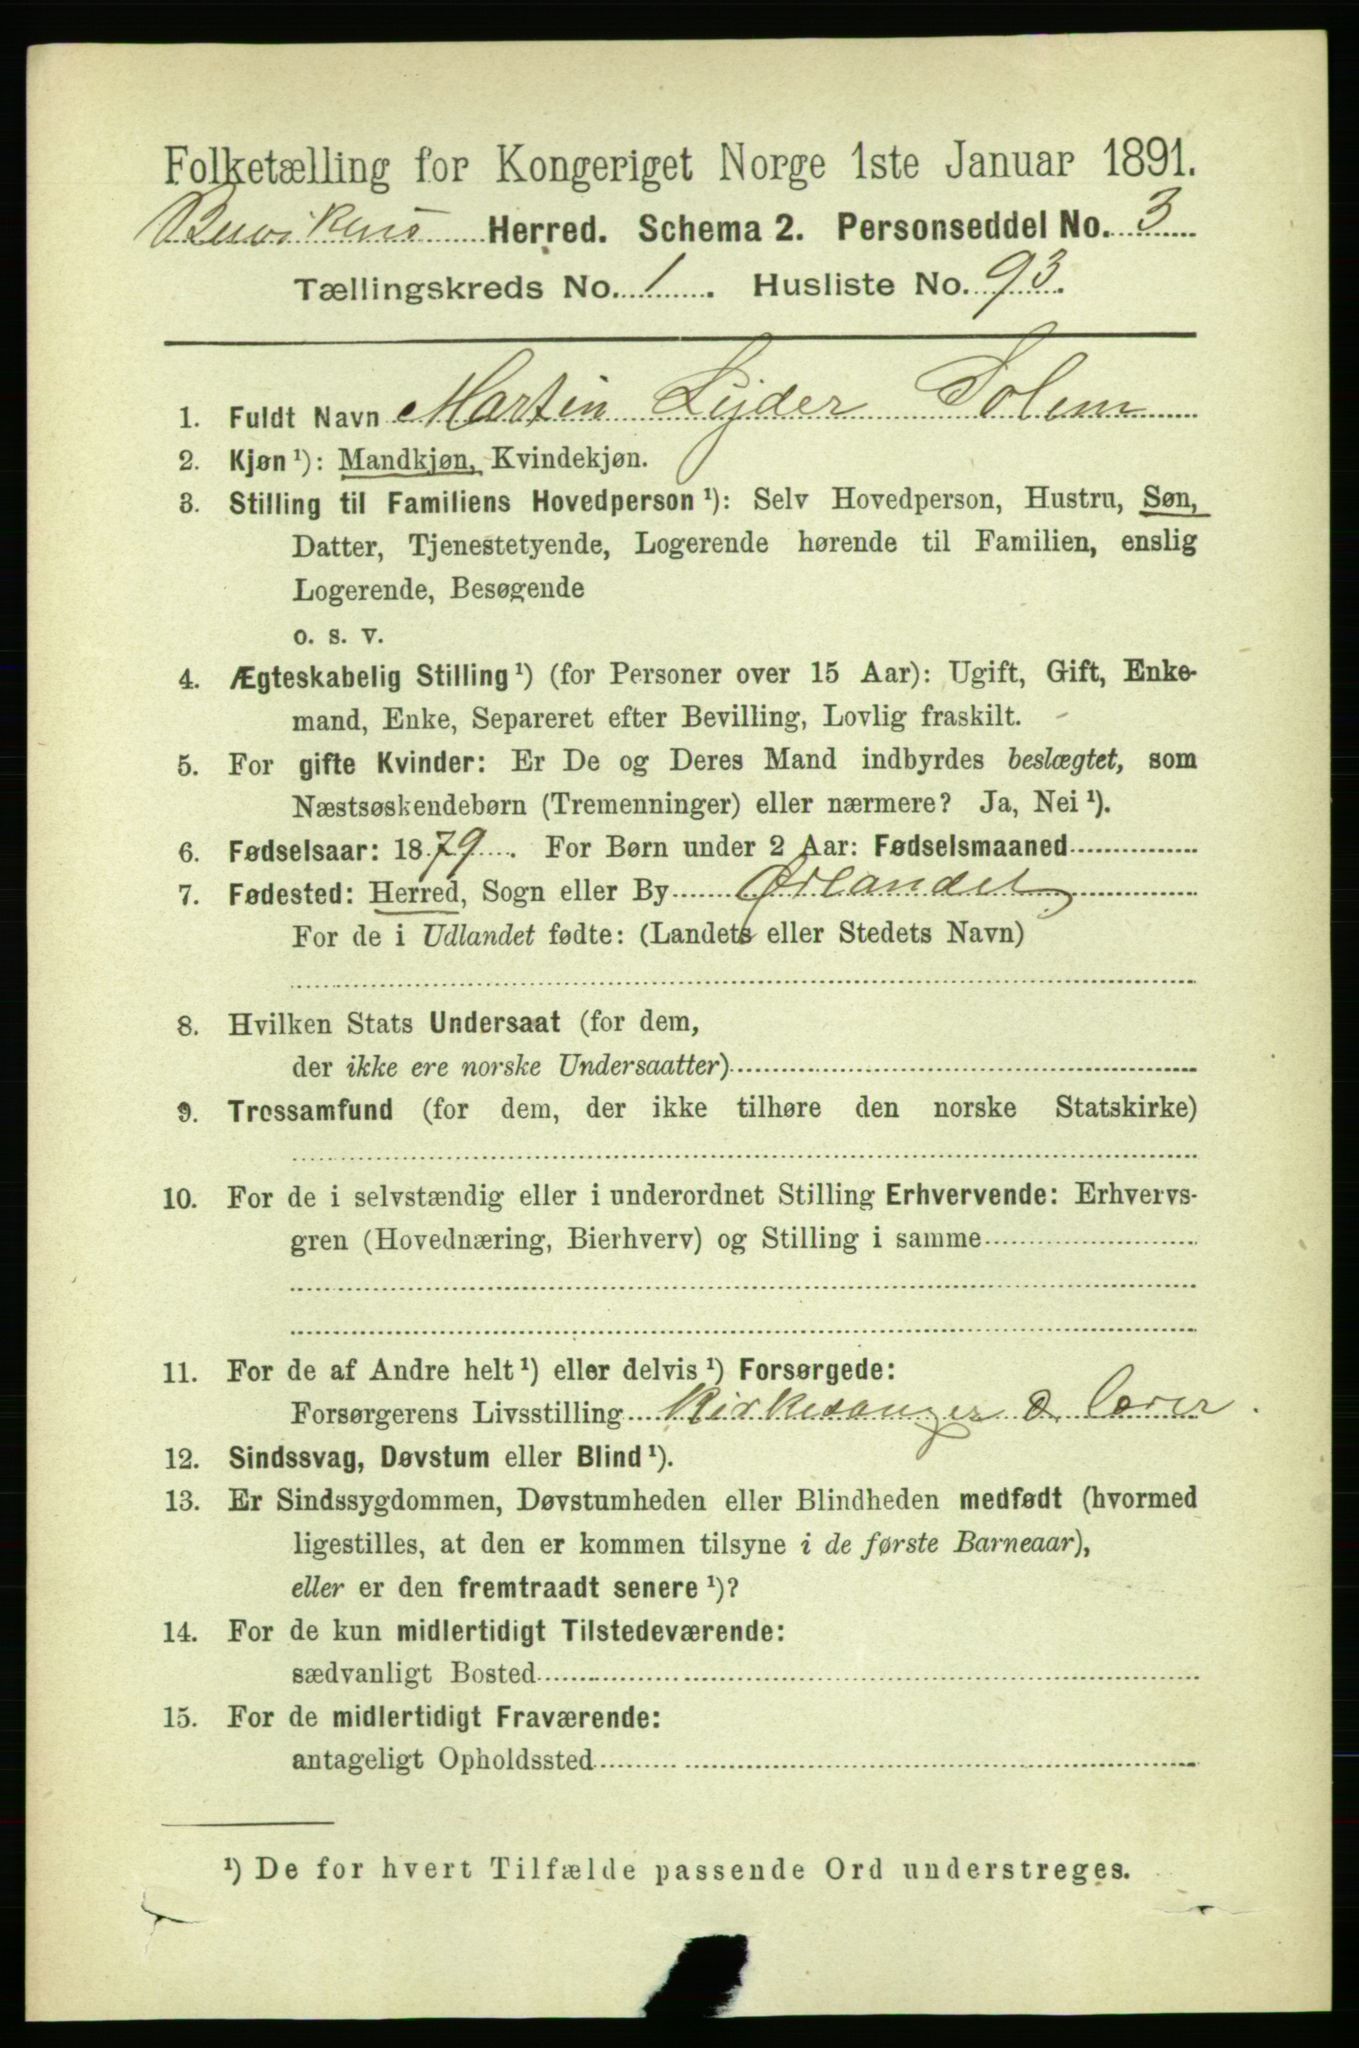 Folketælling for Kongeriget Norge 1ste Januar 1891.
Buvikens Herred. Schema 2. Personseddel No. 3
Tællingskreds No. 1. Husliste No. 93.
1. Fuldt Navn Martin Lyder Solem
2. Kjøn ¹): Mandkjøn, Kvindekjøn.
3. Stilling til Familiens Hovedperson ¹): Selv Hovedperson, Hustru, Søn,
Datter, Tjenestetyende, Logerende hørende til Familien, enslig
Logerende, Besøgende
o. s. v.
4. Ægteskabelig Stilling ¹) (for Personer over 15 Aar): Ugift, Gift, Enke-
mand, Enke, Separeret efter Bevilling, Lovlig fraskilt.
5. For gifte Kvinder: Er De og Deres Mand indbyrdes beslægtet, som
Næstsøskendebørn (Tremenninger) eller nærmere? Ja, Nei ¹).
6. Fødselsaar: 1879. For Børn under 2 Aar: Fødselsmaaned
7. Fødested: Herred, Sogn eller By Ørlandet
For de i Udlandet fødte: (Landets eller Stedets Navn)
8. Hvilken Stats Undersaat (for dem,
der ikke ere norske Undersaatter)
9. Trossamfund (for dem, der ikke tilhøre den norske Statskirke)
10. For de i selvstændig eller i underordnet Stilling Erhvervende: Erhvervs-
gren (Hovednæring, Bierhverv) og Stilling i samme
11. For de af Andre helt ¹) eller delvis ¹) Forsørgede:
Forsørgerens Livsstilling Kirkesanger & Lærer.
12. Sindssvag, Døvstum eller Blind ¹).
13. Er Sindssygdommen, Døvstumheden eller Blindheden medfødt (hvormed
ligestilles, at den er kommen tilsyne i de første Barneaar),
eller er den fremtraadt senere ¹)?
14. For de kun midlertidigt Tilstedeværende:
sædvanligt Bosted
15. For de midlertidigt Fraværende:
antageligt Opholdssted
¹) De for hvert Tilfælde passende Ord understreges.